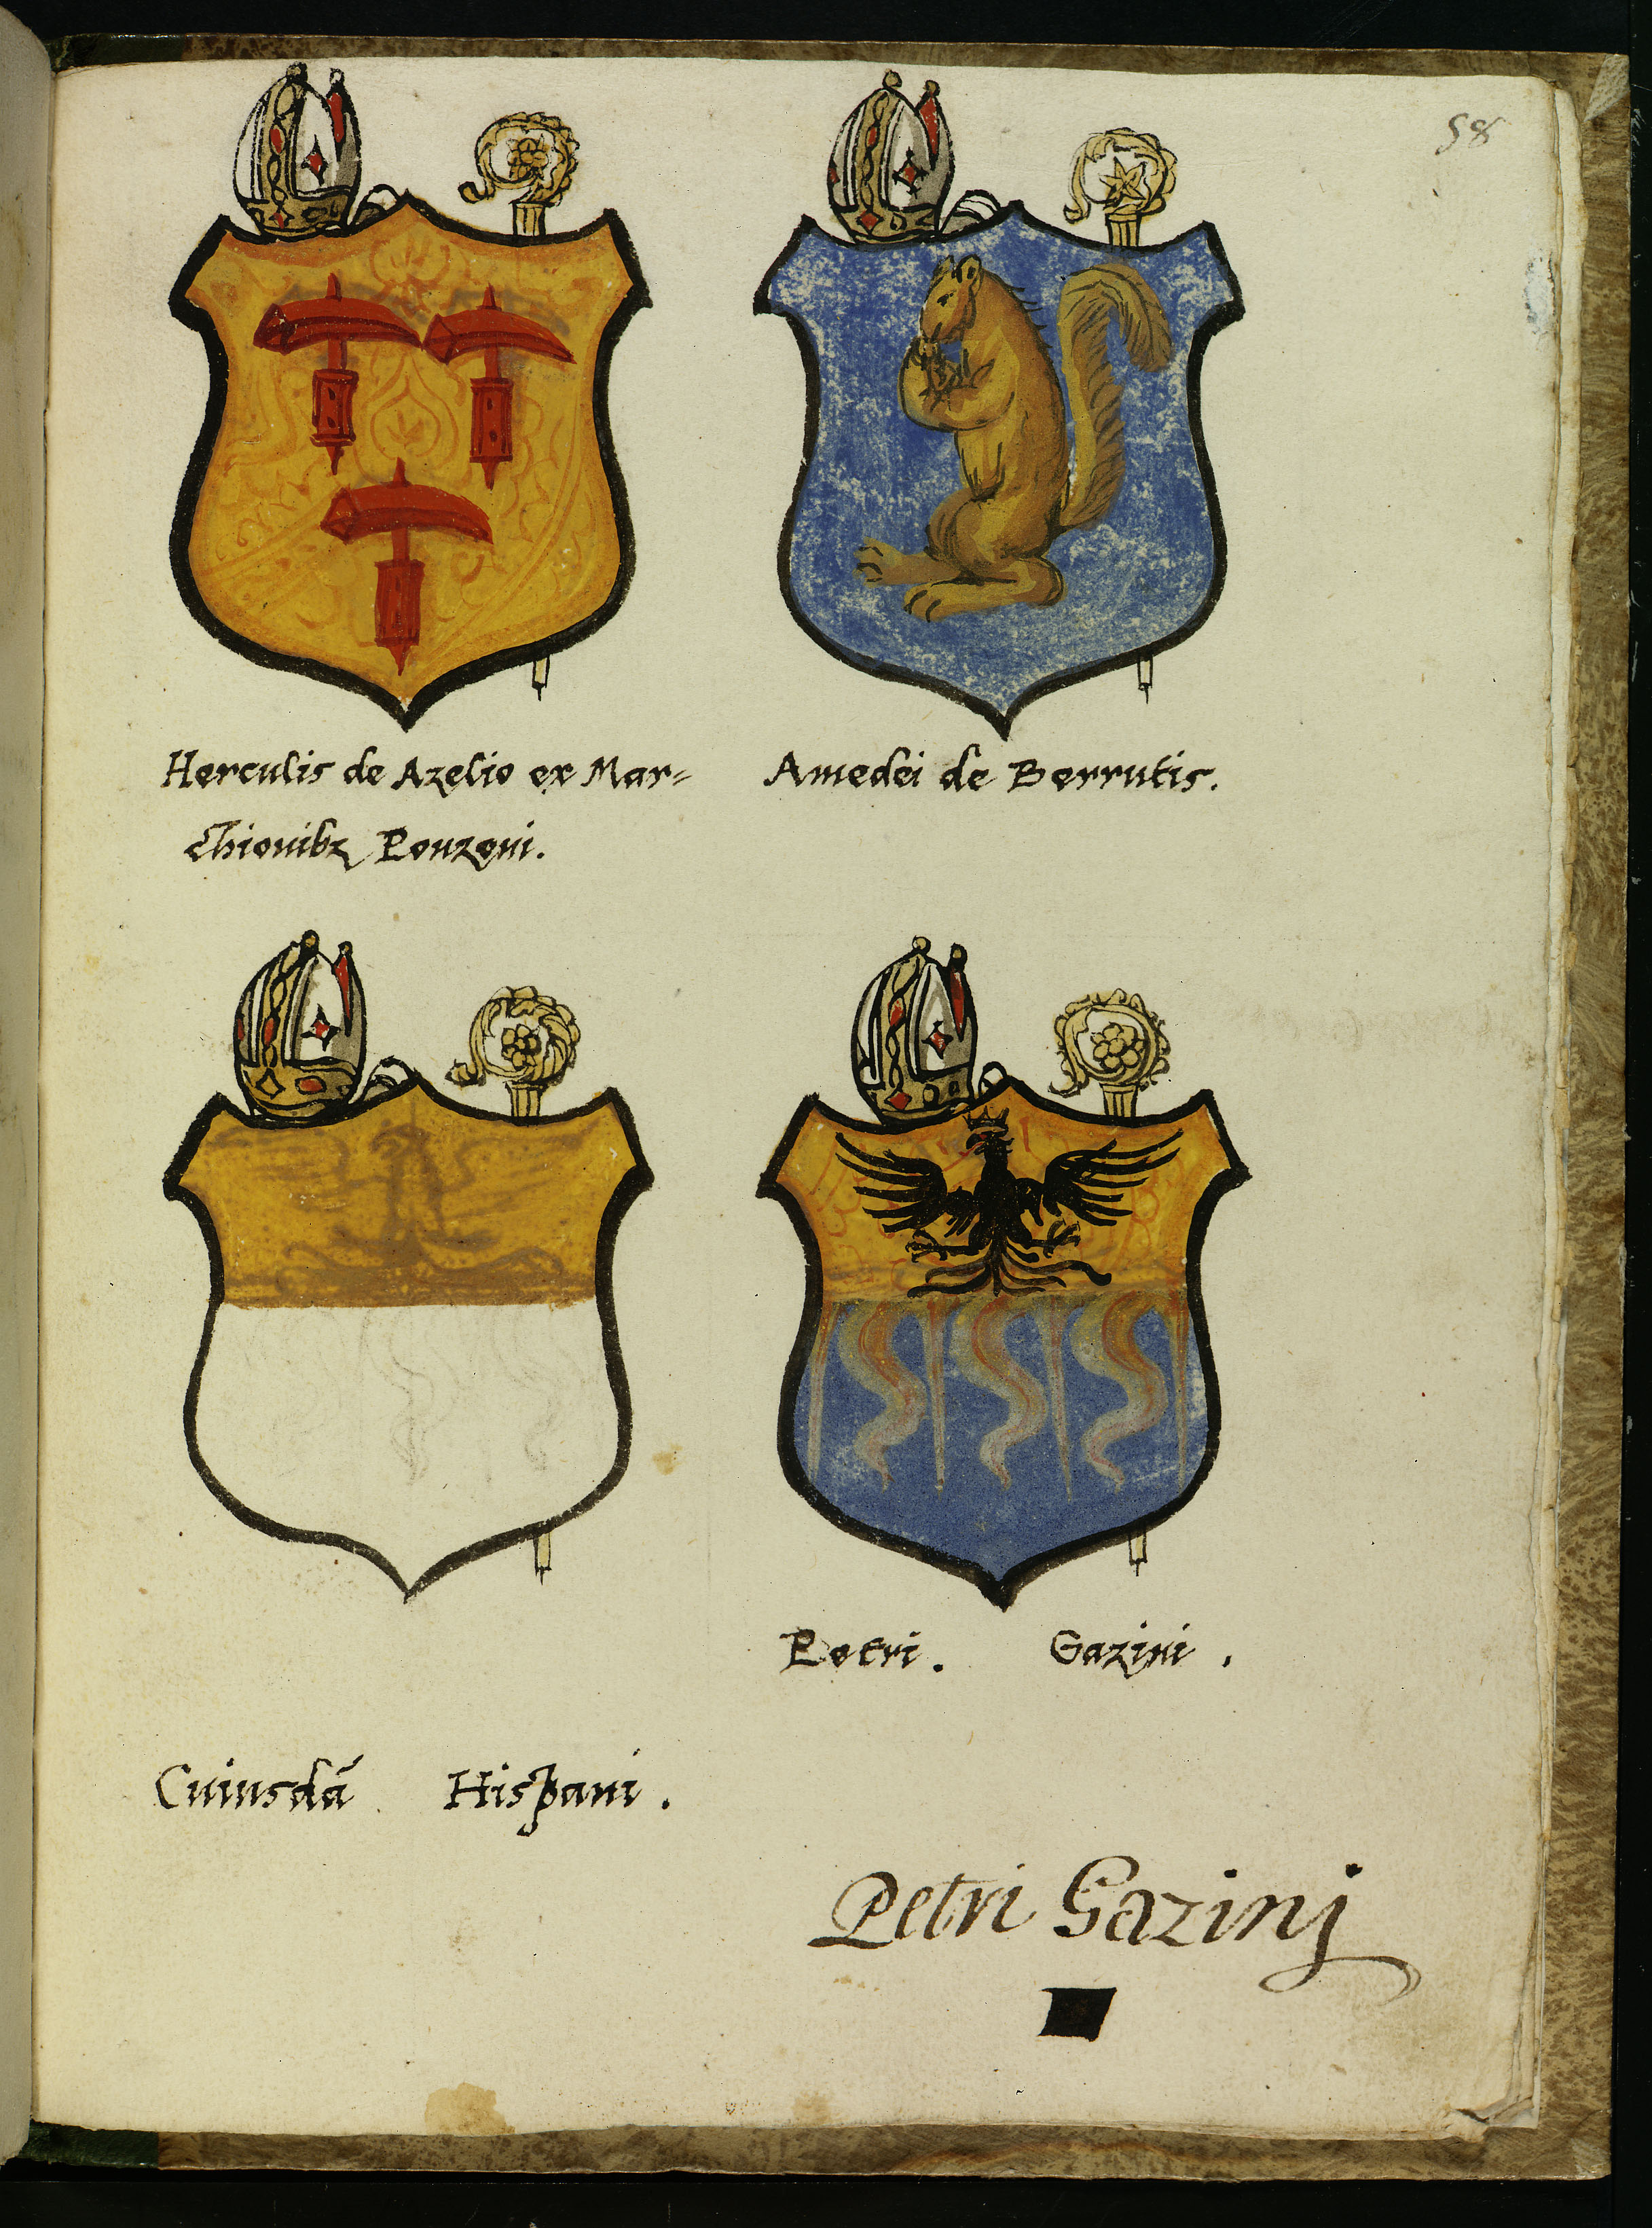 58
Herculis de Azelio ex Mar=
chionibꝫ Ponzoni.
Amedei de Berrutis.
Petri. Gazini.
Cuiusdā Hispani.
Petri Gazinj